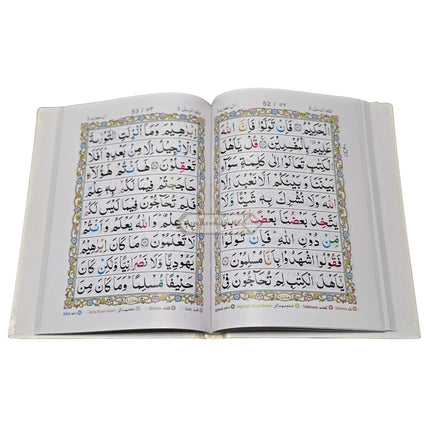 52 / ٥٢
الْحَكِيْمُ ۝ فَاِنْ تَوَلَّوْا فَاِنَّ اللّٰهَ
عَلِيْمٌۢ بِالْمُفْسِدِيْنَ ۝ قُلْ يٰۤاَهْلَ
الْكِتٰبِ تَعَالَوْا اِلٰى كَلِمَةٍ سَوَآءٍۢ
بَيْنَنَا وَ بَيْنَكُمْ اَلَّا نَعْبُدَ اِلَّا
اللّٰهَ وَلَا نُشْرِكَ بِهٖ شَيْـًٔا وَّلَا
يَتَّخِذَ بَعْضُنَا بَعْضًا اَرْبَابًا
مِّنْ دُوْنِ اللّٰهِ فَاِنْ تَوَلَّوْا
فَقُوْلُوا اشْهَدُوْا بِاَنَّا مُسْلِمُوْنَ ۝
يٰۤاَهْلَ الْكِتٰبِ لِمَ تُحَآجُّوْنَ فِيْۤ
53 / ٥٣
اِبْرٰهِيْمَ وَمَاۤ اُنْزِلَتِ التَّوْرٰىةُ
وَالْاِنْجِيْلُ اِلَّا مِنْۢ بَعْدِهٖ اَفَلَا
تَعْقِلُوْنَ ۝ هٰۤاَنْتُمْ هٰۤؤُلَآءِ
حَاجَجْتُمْ فِيْمَا لَكُمْ بِهٖ عِلْمٌ
فَلِمَ تُحَآجُّوْنَ فِيْمَا لَيْسَ لَكُمْ
بِهٖ عِلْمٌ وَاللّٰهُ يَعْلَمُ وَاَنْتُمْ
لَا تَعْلَمُوْنَ ۝ مَا كَانَ اِبْرٰهِيْمُ
يَهُوْدِيًّا وَّلَا نَصْرَانِيًّا وَّلٰكِنْ كَانَ
حَنِيْفًا مُّسْلِمًا وَمَا كَانَ مِنَ